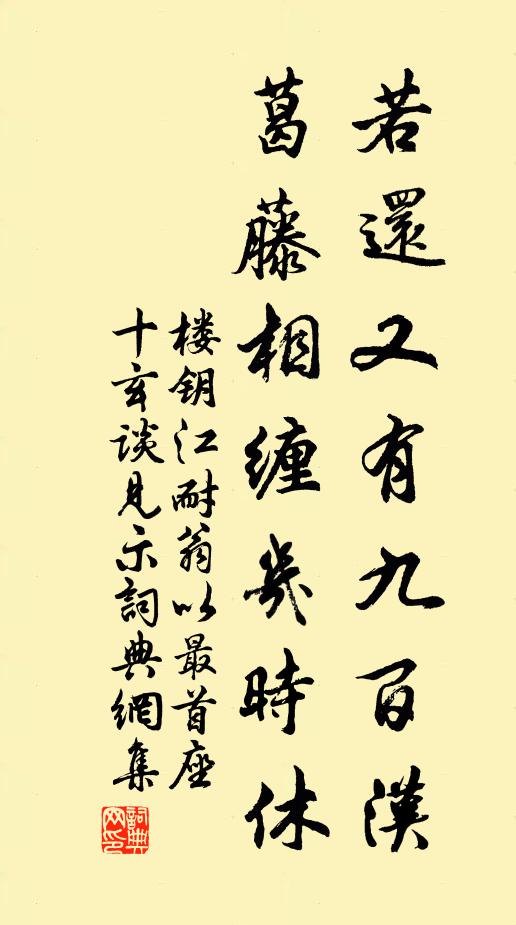 若還又有九百漢
葛藤相纏幾時休
楼钥江耐翁以最首座
十玄談見示詞典網集
詞典網印